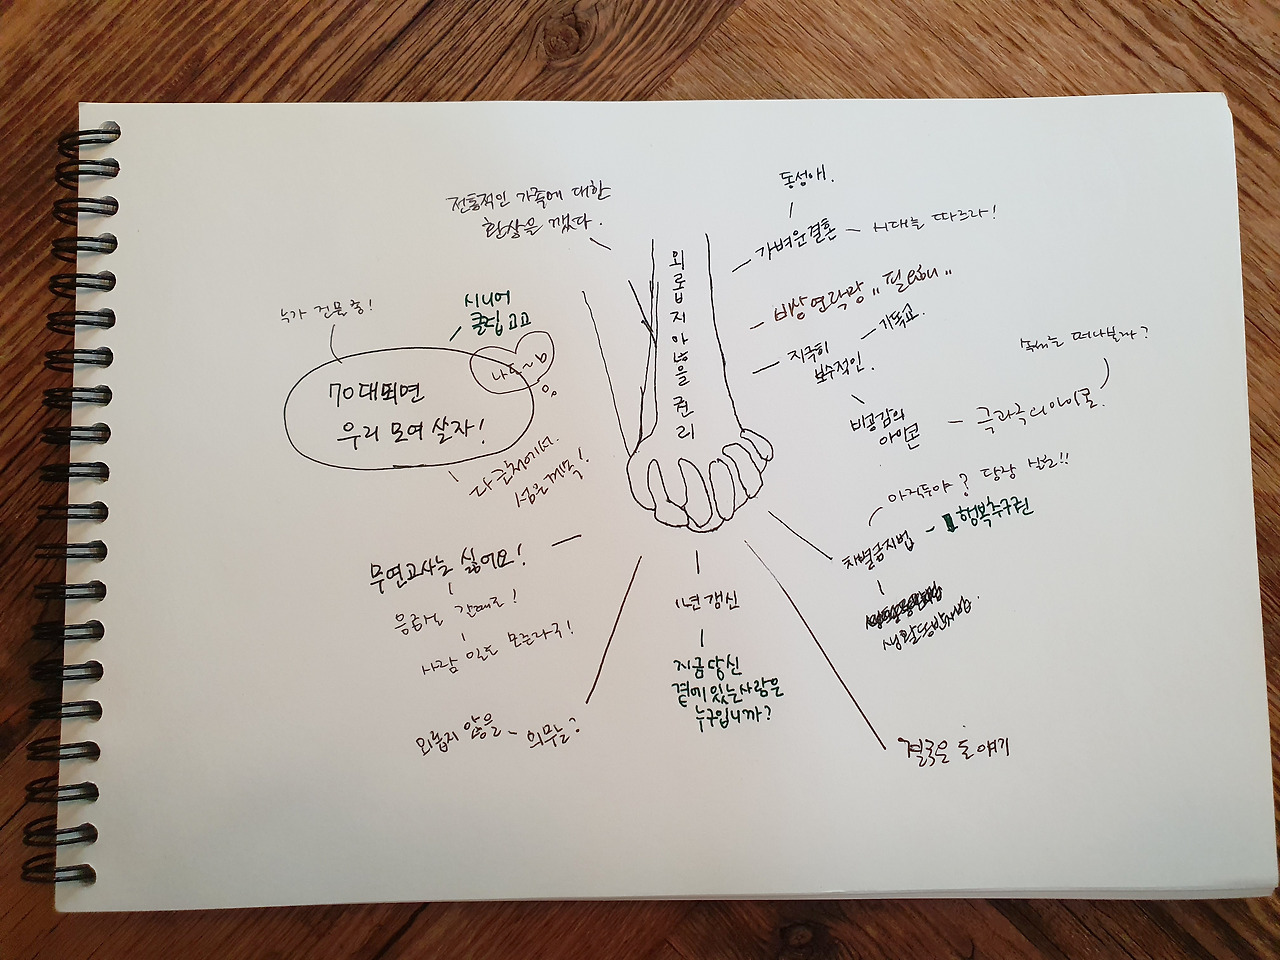 외롭지않을권리
전통적인 가족에 대한
환상을 깼다.
동성애.
가벼운결혼 ~ 시대를 따르라!
비상연락망 "필요해"
지극히
보수적인.
기독교.
비공감의
아이콘
극과극의아이콘.
떠나볼까?
차별금지법 - 행복추구권
아직두야? 당장
생활동반자법.
결국은 돈 얘기
1년 갱신
지금당신
곁에있는사람은
누구입니까?
외롭지 않을 ~ 의무는?
무연고사는 싫어요!
사람 일은 모른다구!
70대되면
우리 모여 살자!
누가 건물 좀!
시니어
클럽 고고
나도~
다 근처에서.